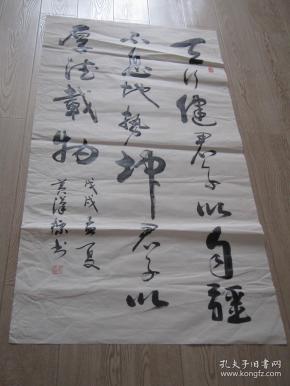 天行健君子以自疆
不息地势坤君子以
厚德載物
戊戌孟夏
书
孔夫子旧书网
book.kongfz.com